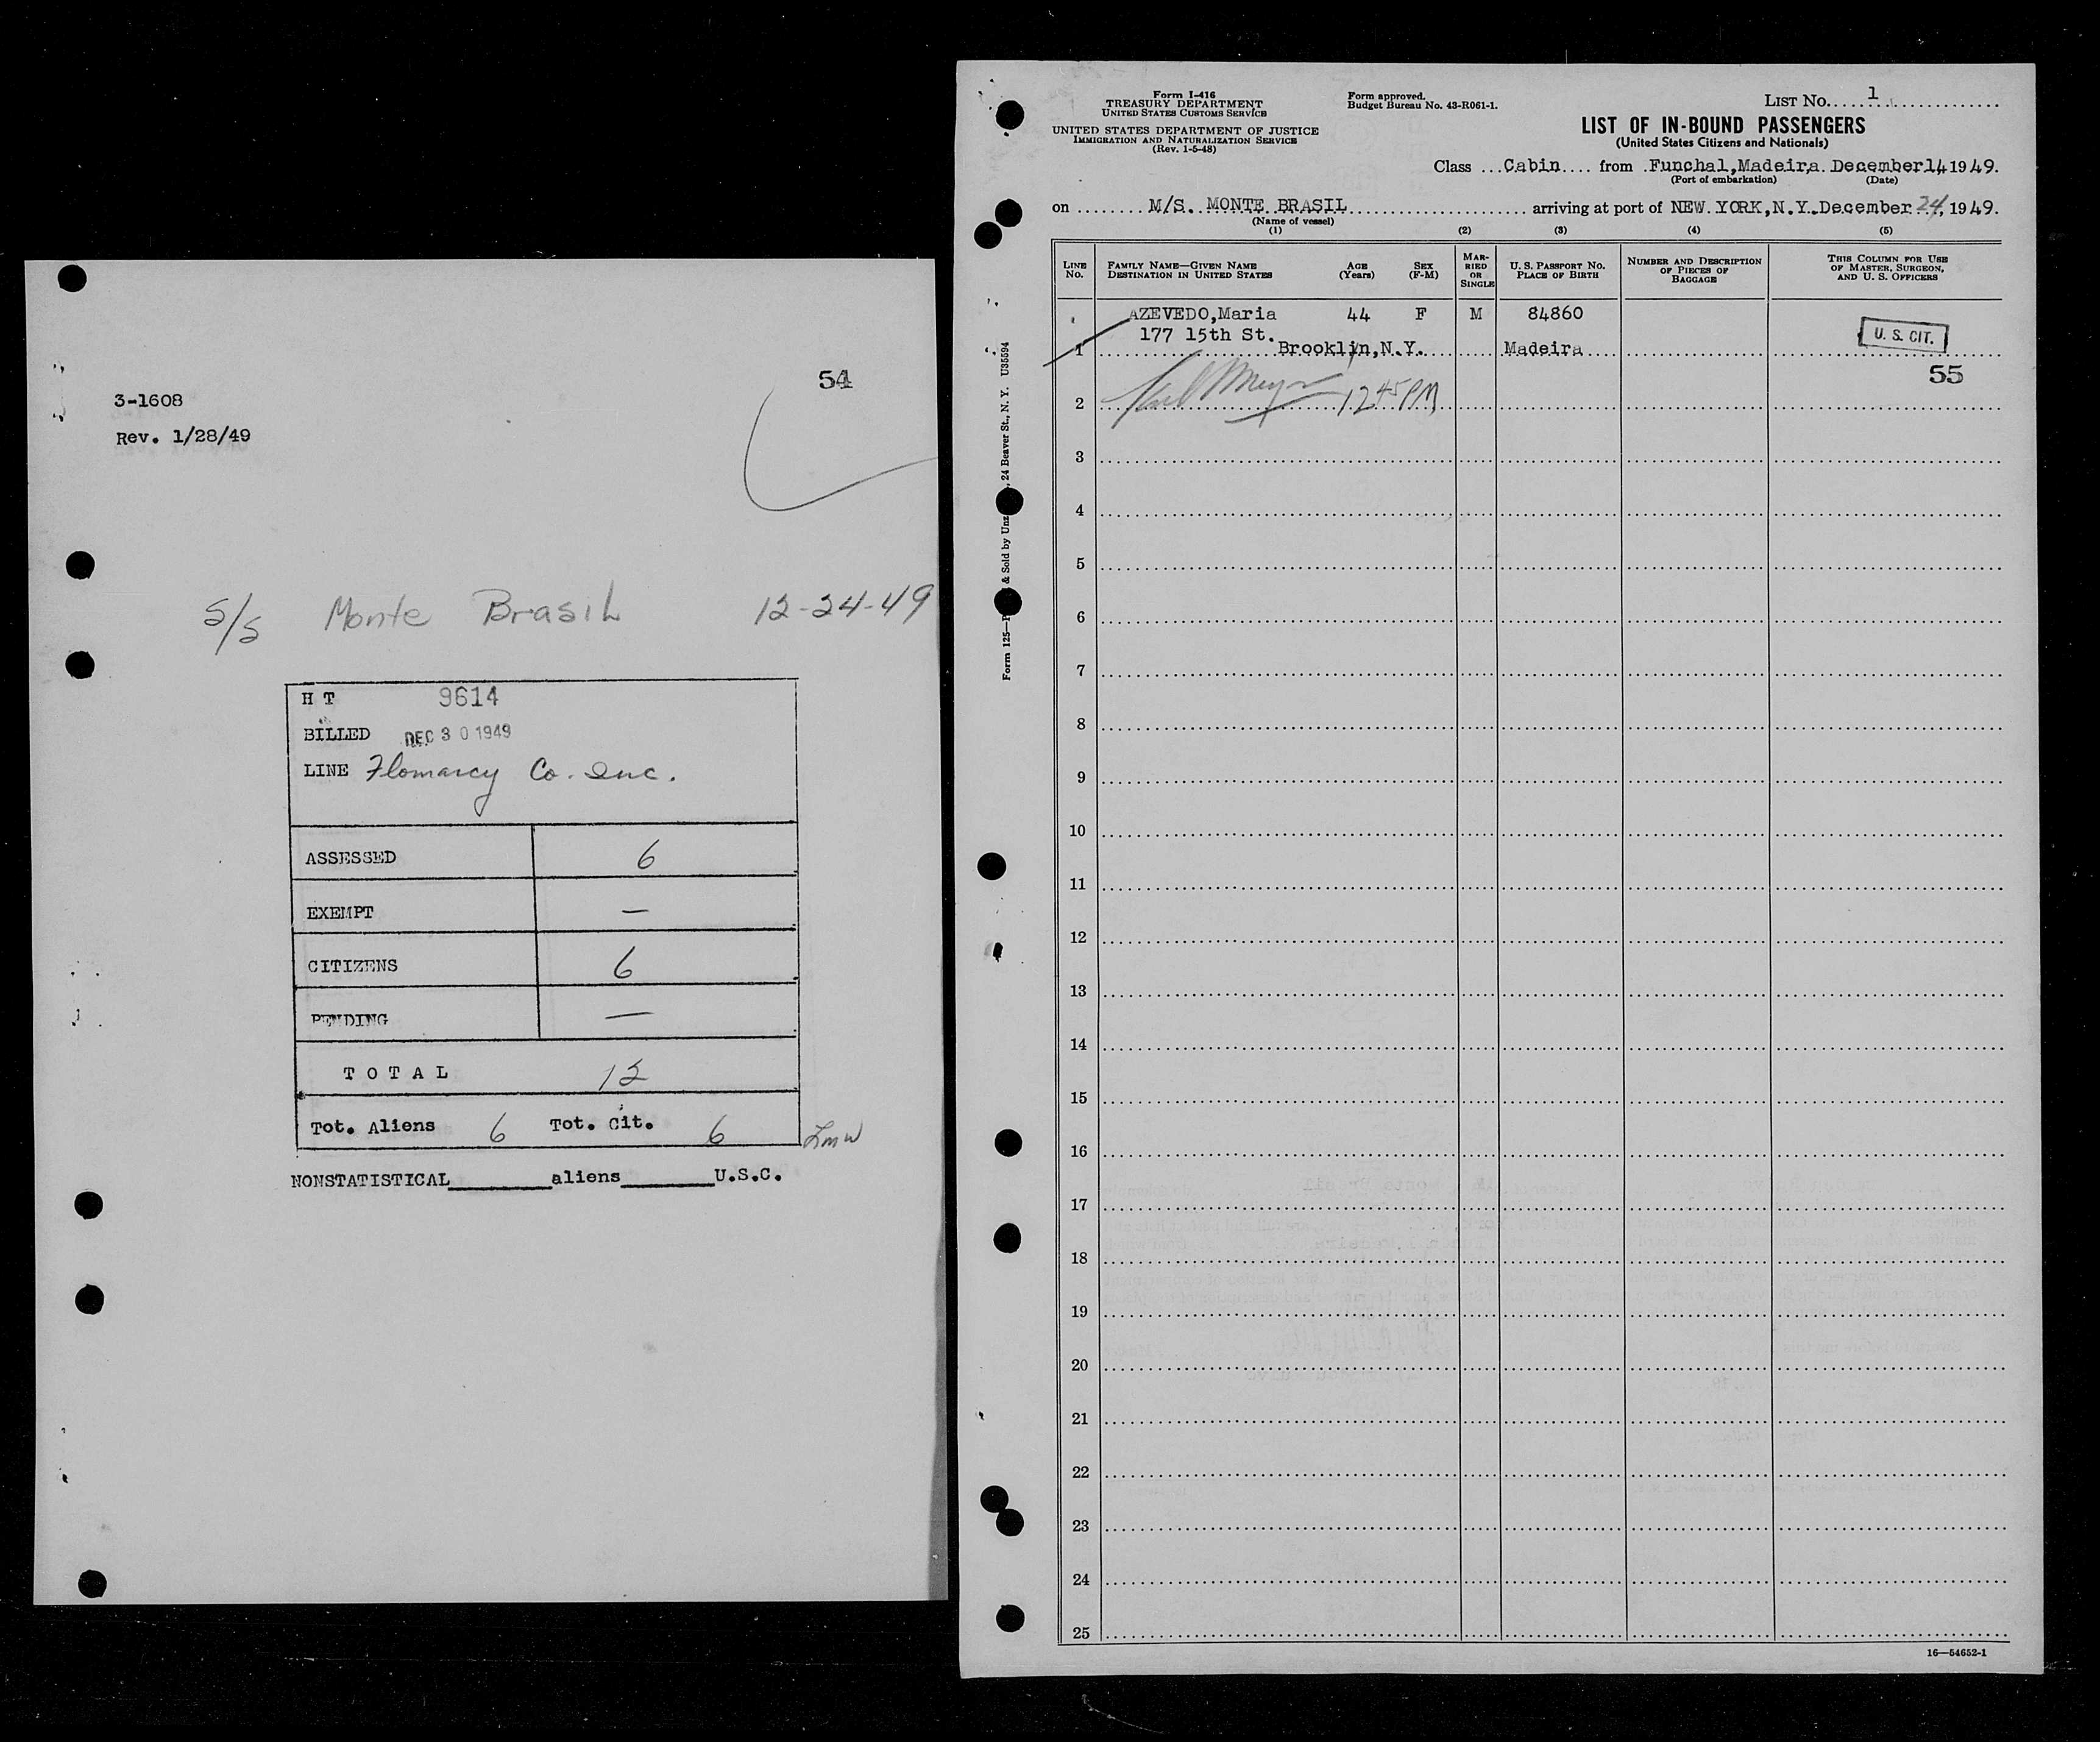 54
3-1608
Rev. 1/28/49
S/S Monte Brasil 12-24-49
H T 9614
BILLED DEC 30 1949
LINE Flomarcy Co. Inc.
ASSESSED 6
EXEMPT —
CITIZENS 6
PENDING —
TOTAL 12
Tot. Aliens 6 Tot. Cit. 6 Lmw
NONSTATISTICAL________aliens________U.S.C.
Form I-416
TREASURY DEPARTMENT
UNITED STATES CUSTOMS SERVICE
UNITED STATES DEPARTMENT OF JUSTICE
IMMIGRATION AND NATURALIZATION SERVICE
(Rev. 1-5-48)
Form approved.
Budget Bureau No. 43-R061-1.
LIST NO. 1
LIST OF IN-BOUND PASSENGERS
(United States Citizens and Nationals)
Class Cabin from Funchal,Madeira December14,1949.
(Port of embarkation) (Date)
on M/S. MONTE BRASIL arriving at port of NEW YORK,N.Y.December 24, 1949.
(Name of vessel)
(1) (2) (3) (4) (5)
LINE No.
FAMILY NAME—GIVEN NAME
DESTINATION IN UNITED STATES
AGE (Years)
SEX (F-M)
MARRIED OR SINGLE
U. S. PASSPORT NO.
PLACE OF BIRTH
NUMBER AND DESCRIPTION OF PIECES OF BAGGAGE
THIS COLUMN FOR USE OF MASTER, SURGEON, AND U. S. OFFICERS
AZEVEDO,Maria 44 F M 84860
177 15th St.
1 Brooklyn,N.Y. Madeira U. S. CIT.
55
2 12 45 PM
3
4
5
6
7
8
9
10
11
12
13
14
15
16
17
18
19
20
21
22
23
24
25
16—54652-1
& Sold by Unz , 24 Beaver St., N. Y. U35594
Form 125—